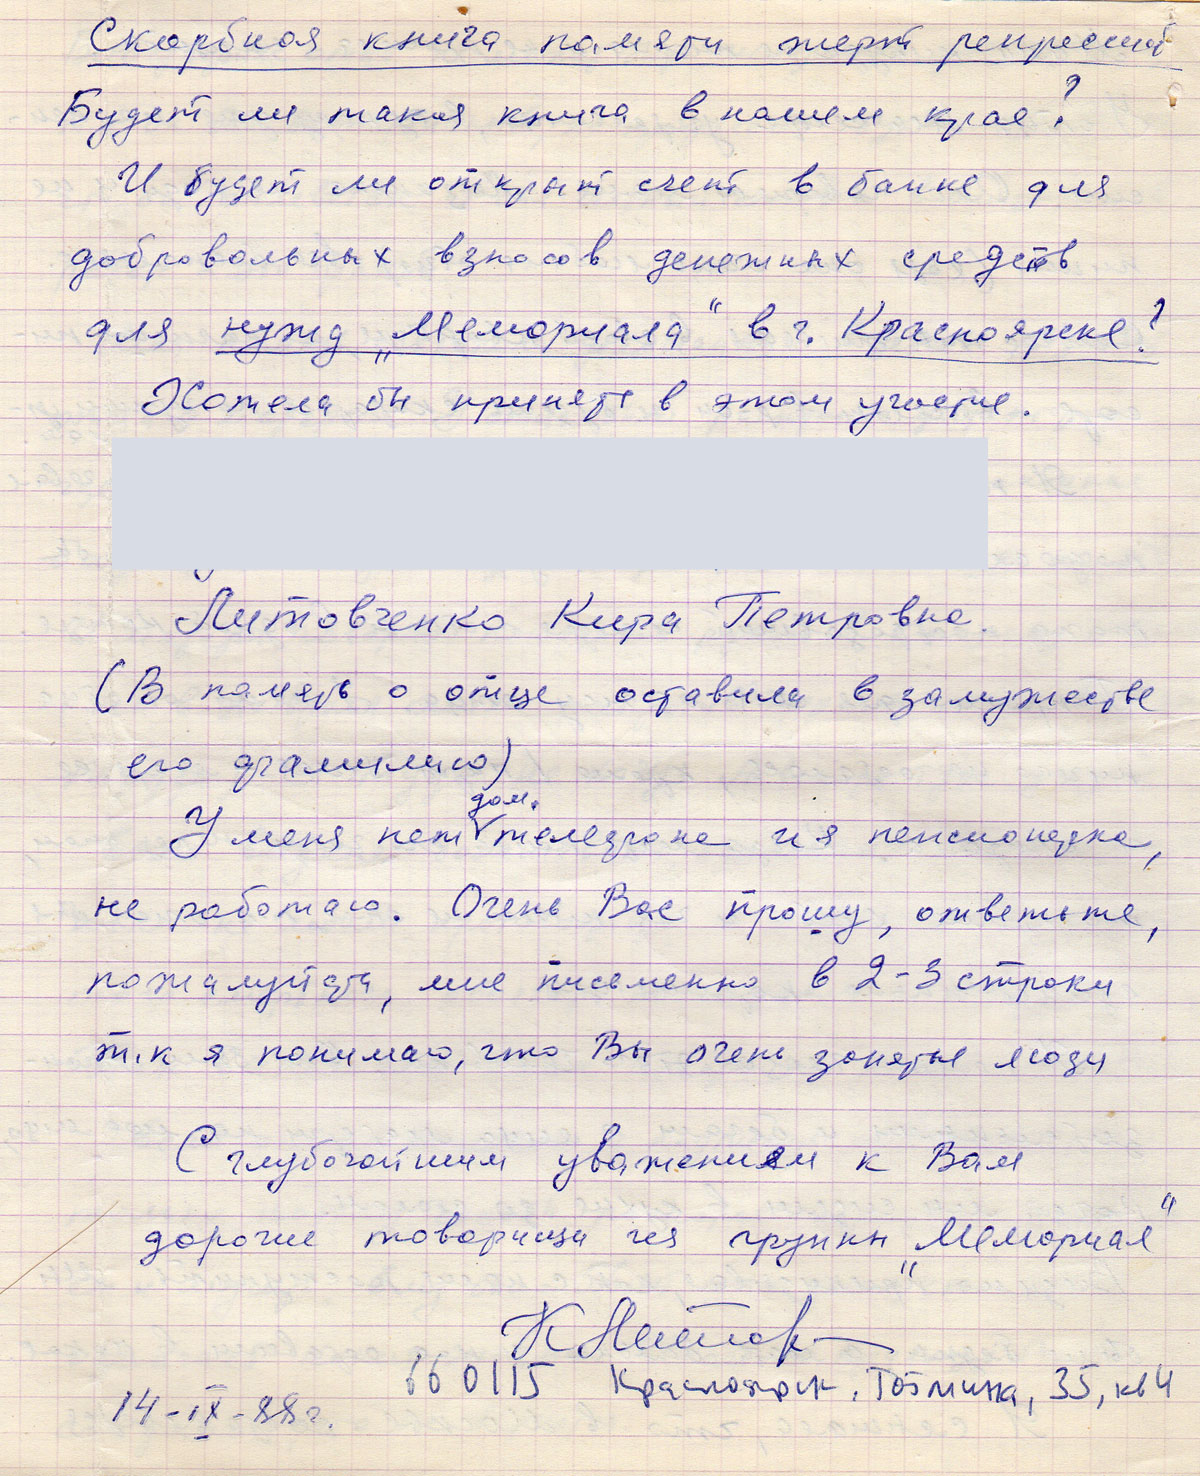 Скорбная книга памяти жертв репрессий
Будет ли такая книга в нашем крае?
И будет ли открыт счет в банке для
добровольных взносов денежных средств
для нужд „Мемориала“ в г. Красноярске?
Хотела бы принять в этом участие.
Литовченко Кира Петровна.
(В память о отце оставила в замужестве
его фамилию)
У меня нет дом. телефона и я пенсионерка,
не работаю. Очень Вас прошу, ответьте,
пожалуйста, мне письменно в 2-3 строки
т.к я понимаю, что Вы очень занятые люди
С глубочайшим уважением к Вам
дорогие товарищи из группы „Мемориал“
К Литов
660115 Красноярск, Тотмина, 35, кв 4
14-IX-88г.